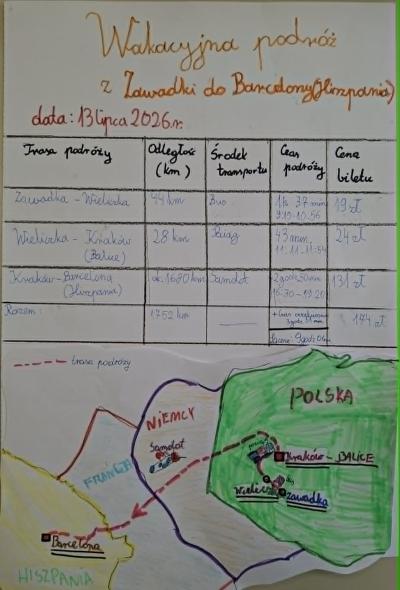 Wakacyjna podróż
z Zawadki do Barcelony (Hiszpania)
data: 13 lipca 2026 r.
Trasa podróży Odległość (km) Środek transportu Czas podróży Cena biletu
Zawadka - Wieliczka 44 km Bus 1h 37 min 9:19-10:56 19 zł
Wieliczka - Kraków (Balice) 28 km Pociąg 43 min. 11:11-11:54 24 zł
Kraków-Barcelona (Hiszpania) ok. 1680 km Samolot 2 godz 50 min 16:30-19:20 131 zł
Razem: 1752 km 174 zł
trasa podróży
POLSKA
NIEMCY
Samolot
pociąg
Kraków - BALICE
FRANCJA
Bus
Wieliczka
Zawadka
Barcelona
HISZPANIA